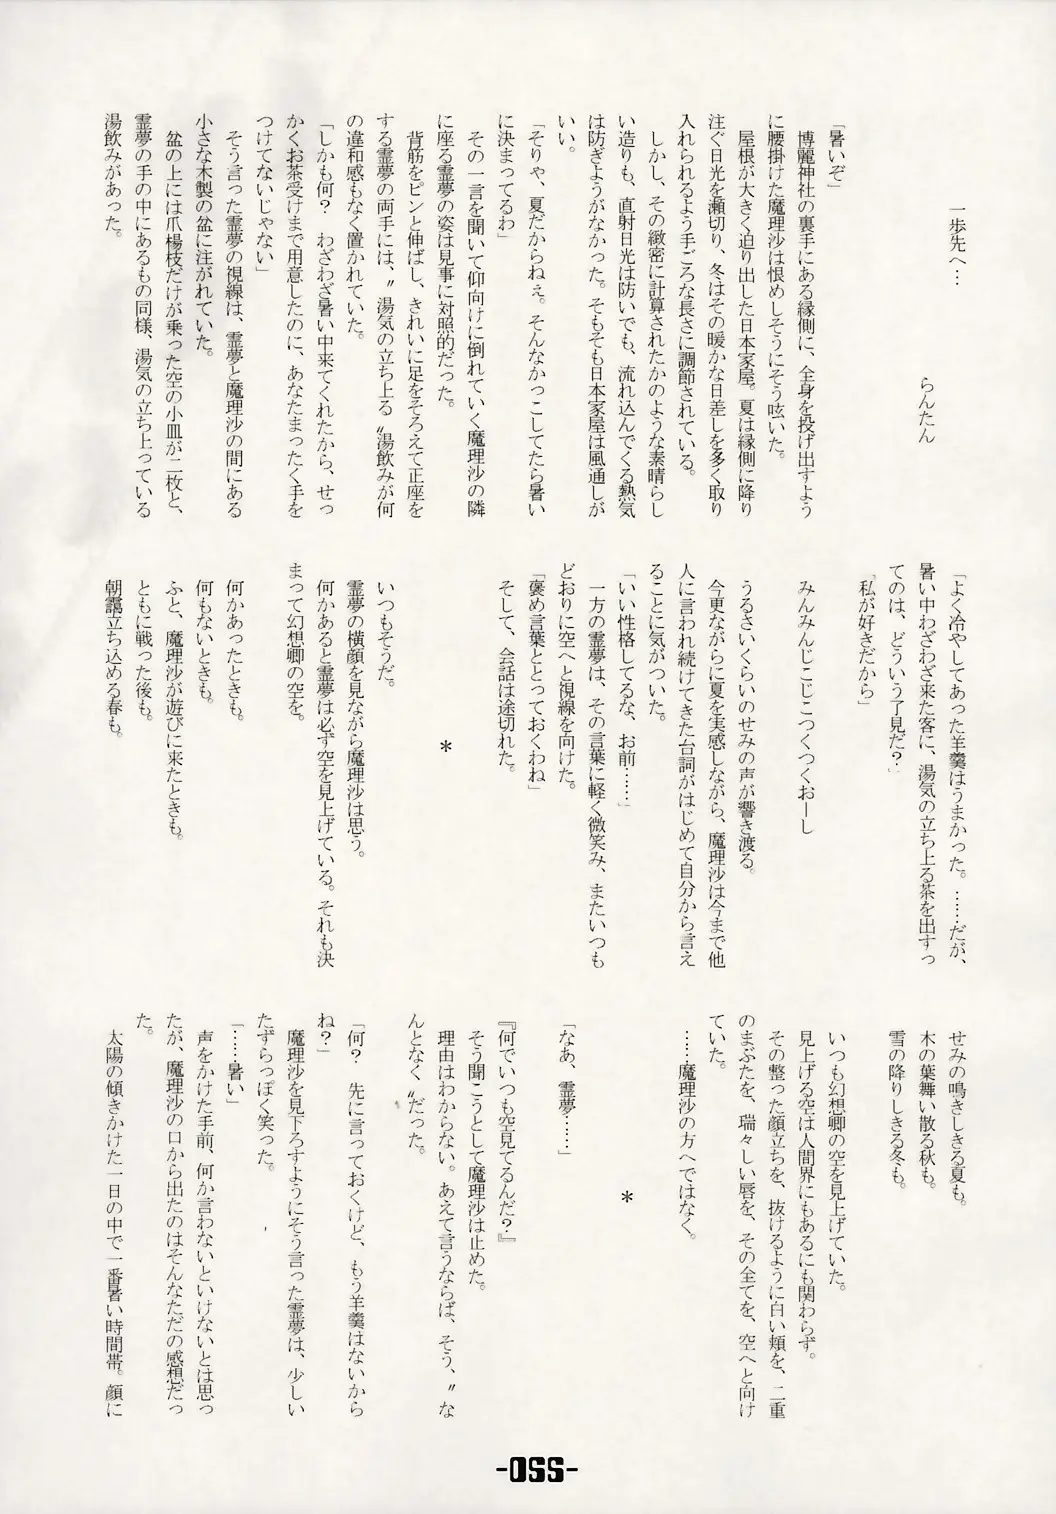 一歩先へ…
らんたん
「暑いぞ」
　博麗神社の裏手にある縁側に、全身を投げ出すよう
に腰掛けた魔理沙は恨めしそうにそう呟いた。
　屋根が大きく迫り出した日本家屋。夏は縁側に降り
注ぐ日光を瀬切り、冬はその暖かな日差しを多く取り
入れられるよう手ごろな長さに調節されている。
　しかし、その緻密に計算されたかのような素晴らし
い造りも、直射日光は防いでも、流れ込んでくる熱気
は防ぎようがなかった。そもそも日本家屋は風通しが
いい。
「そりゃ、夏だからねぇ。そんなかっこしてたら暑い
に決まってるわ」
　その一言を聞いて仰向けに倒れていく魔理沙の隣
に座る霊夢の姿は見事に対照的だった。
　背筋をピンと伸ばし、きれいに足をそろえて正座を
する霊夢の両手には、〃湯気の立ち上る〃湯飲みが何
の違和感もなく置かれていた。
「しかも何？　わざわざ暑い中来てくれたから、せっ
かくお茶受けまで用意したのに、あなたまったく手を
つけてないじゃない」
　そう言った霊夢の視線は、霊夢と魔理沙の間にある
小さな木製の盆に注がれていた。
　盆の上には爪楊枝だけが乗った空の小皿が二枚と、
霊夢の手の中にあるもの同様、湯気の立ち上っている
湯飲みがあった。
「よく冷やしてあった羊羹はうまかった。……だが、
暑い中わざわざ来た客に、湯気の立ち上る茶を出すっ
てのは、どういう了見だ？」
「私が好きだから」
　みんみんじこじこつくつくおーし
　うるさいくらいのせみの声が響き渡る。
　今更ながらに夏を実感しながら、魔理沙は今まで他
人に言われ続けてきた台詞がはじめて自分から言え
ることに気がついた。
「いい性格してるな、お前……」
　一方の霊夢は、その言葉に軽く微笑み、またいつも
どおりに空へと視線を向けた。
「褒め言葉ととっておくわね」
　そして、会話は途切れた。
＊
　いつもそうだ。
　霊夢の横顔を見ながら魔理沙は思う。
　何かあると霊夢は必ず空を見上げている。それも決
まって幻想卿の空を。
　何かあったときも。
　何もないときも。
　ふと、魔理沙が遊びに来たときも。
　ともに戦った後も。
　朝靄立ち込める春も。
　せみの鳴きしきる夏も。
　木の葉舞い散る秋も。
　雪の降りしきる冬も。
　いつも幻想卿の空を見上げていた。
　見上げる空は人間界にもあるにも関わらず。
　その整った顔立ちを、抜けるように白い頬を、二重
のまぶたを、瑞々しい唇を、その全てを、空へと向け
ていた。
　……魔理沙の方へではなく。
＊
「なあ、霊夢……」
『何でいつも空見てるんだ？』
　そう聞こうとして魔理沙は止めた。
　理由はわからない。あえて言うならば、そう、〃な
んとなく〃だった。
「何？　先に言っておくけど、もう羊羹はないから
ね？」
　魔理沙を見下ろすようにそう言った霊夢は、少しい
たずらっぽく笑った。
「……暑い」
　声をかけた手前、何か言わないといけないとは思っ
たが、魔理沙の口から出たのはそんなただの感想だっ
た。
　太陽の傾きかけた一日の中で一番暑い時間帯。顔に
-055-